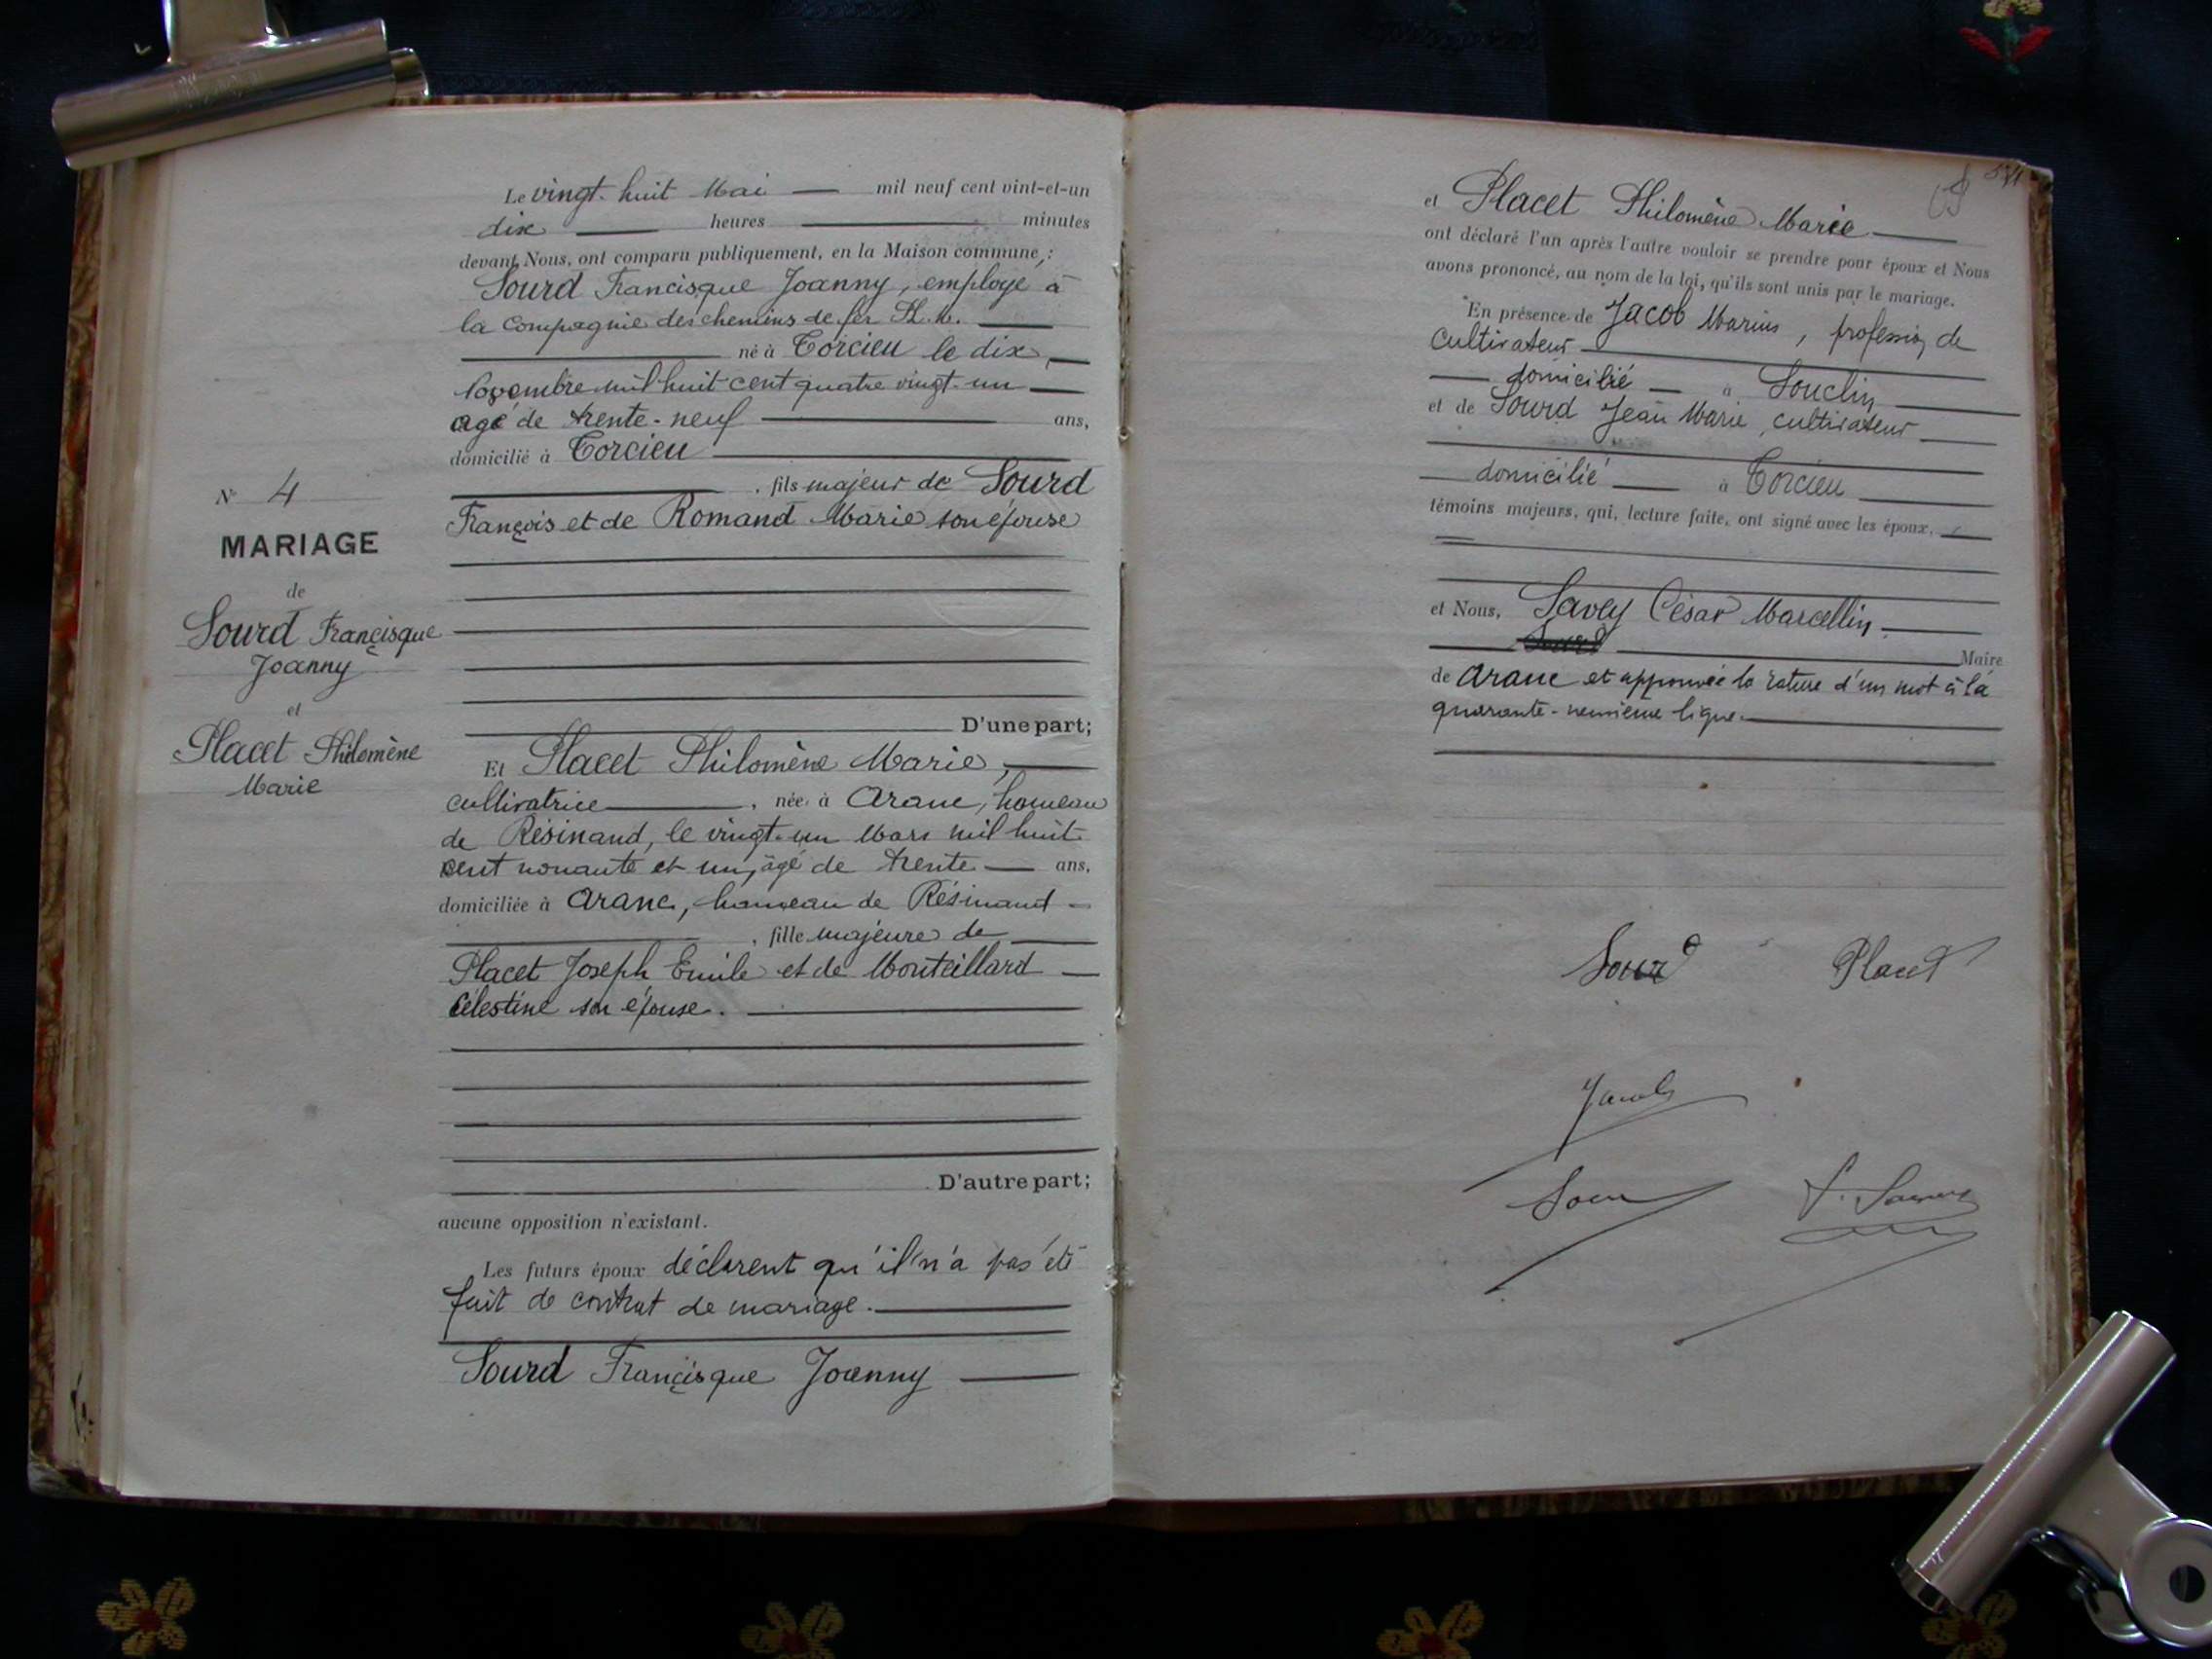 Le vingt-huit Mai mil neuf cent vint-et-un
dix heures minutes
devant Nous, ont comparu publiquement, en la Maison commune, :
Sourd Francisque Joanny, employé à
la compagnie des chemins de fer
né à Torcieu le dix
Novembre mil huit cent quatre vingt-un
agé de trente-neuf ans,
domicilié à Torcieu
, fils majeur de Sourd
François et de Romand Marie son épouse
N° 4
MARIAGE
de
Sourd Francisque
Joanny
et
Placet Philomène
Marie
D'une part;
Et Placet Philomène Marie,
cultivatrice, née à Aranc, hameau
de Résinand, le vingt-un Mars mil huit
cent nonante et un, âgé de trente ans,
domiciliée à Aranc, hameau de Résinand
, fille majeure de
Placet Joseph Emile et de Monteillard
Célestine son épouse.
D'autre part;
aucune opposition n'existant.
Les futurs époux déclarent qu'il n'a pas été
fait de contrat de mariage.
Sourd Francisque Joanny
et Placet Philomène Marie
ont déclaré l'un après l'autre vouloir se prendre pour époux et Nous
avons prononcé, au nom de la loi, qu'ils sont unis par le mariage.
En présence de Jacob Marius, profession de
cultivateur
domicilié à Souclin
et de Sourd Jean Marie, cultivateur
domicilié à Torcieu
témoins majeurs, qui, lecture faite, ont signé avec les époux,
et Nous, Savey César Marcellin
Maire
de Aranc et approuvée la rature d'un mot à la
quarante-neuvième ligne.
Sourd Placet
Jacob
Sourd